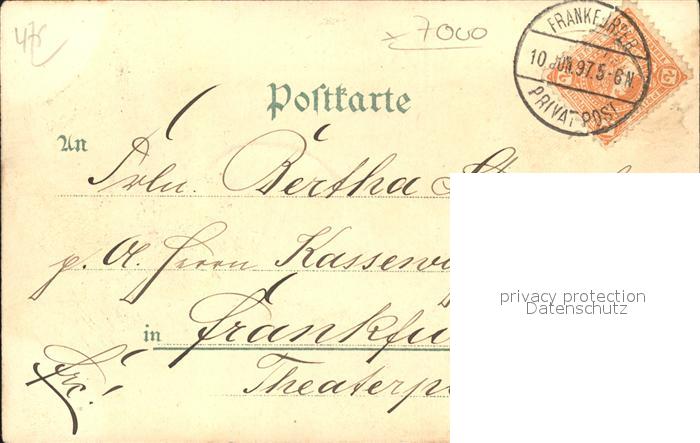 47
7000
FRANKFURTER
10 JUN. 97. 5-6 N
PRIVAT-POST
Postkarte
An
Frln. Bertha
p. A. Herrn
in Frankfu
Theaterp
privacy protection
Datenschutz